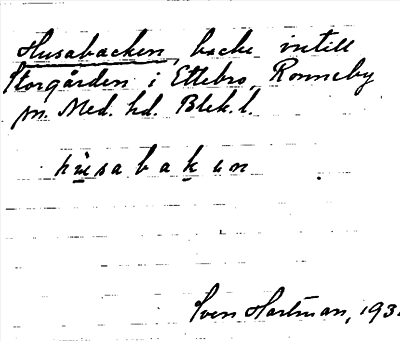 Husabacken, backe intill
Storgården i Ettebro, Ronneby
sn. Med. hd. Blek. l.
hùsabakun
Sven Hartman, 193